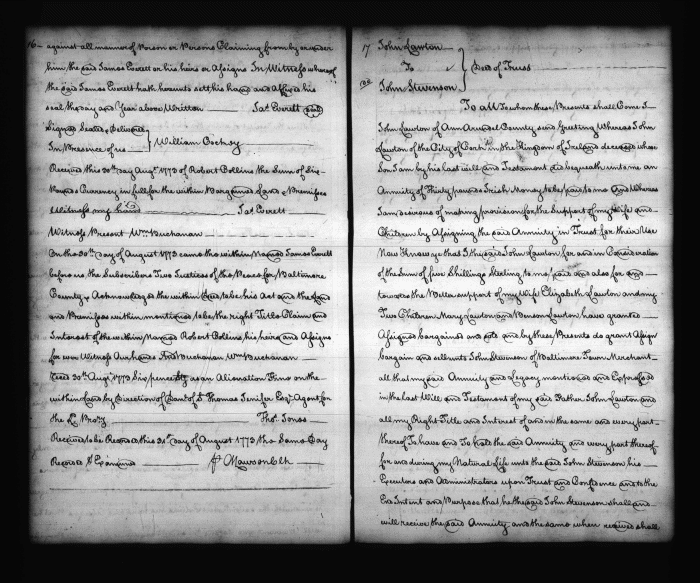 16
against all manner of Person or Persons Claiming from by or under
him the said James Everett or his heirs or Assigns In Witness whereof
the said James Everett hath hereunto sett his hand and Affixed his
seal the day and Year above Written Jas. Everett Seal
Signed Sealed & Delivered
In Presence of us William Cockey
Received this 30th day Augt. 1773 of Robert Collins the Sum of Six
Pounds Currency in full for the within Bargained Land & Premisses
Witness my hand Jas. Everett
Witness Present Wm. Buchanan
On the 30th day of August 1773 came the within Named James Everett
before us the Subscribers Two Justices of the Peace for Baltimore
County & Acknowledged the within Deed to be his Act and the Land
and Premisses within mentioned to be the right Title Claim and
Interest of the within Named Robert Collins his heirs and Assigns
for ever Witness Our hands And. Buchanan Wm. Buchanan
Recd 30th Augt. 1773 Six pence Stg as an Alienation Fine on the
within Land by Direction of Danl. of St. Thomas Jenifer Esqr. Agent for
the Ld. Propry Thos. Jones
Received to be Recorded this 31st day of August 1773 the Same Day
Recorded & Examined
17
John Lawton
To
Deed of Trust
John Stevenson
To all To whom these Presents shall Come I
John Lawton of Ann Arundel County send Greeting Whereas John
Lawton of the City of in the Kingdom of Ireland deceased whose
Son I am by his last will and Testament did bequeath unto me an
Annuity of Thirty pounds Irish Money to be paid to me And Whereas
I am desirous of making provision for the Support of my Wife and
Children by Assigning the said Annuity in Trust for their Use
Now Know ye that I the said John Lawton for and in Consideration
of the Sum of five Shillings Sterling to me paid and also for and
towards the Better support of my Wife Elizabeth Lawton and my
Two Children Mary Lawton and Lawton have granted
Assigned bargained and sold and by these Presents do grant Assign
bargain and sell unto John Stevenson of Baltimore Town Merchant
all that my said Annuity and Legacy mentioned and Expressed
in the last Will and Testament of my said Father John Lawton and
all my Right Title and Interest of and in the same and every part
thereof To have and To hold the said Annuity and every part thereof
for and during my Natural Life unto the said John Stevenson his
Executors and Administrators upon Trust and Confidence and to the
End Intent and Purpose that he the said John Stevenson shall and
will receive the said Annuity and the same when received shall